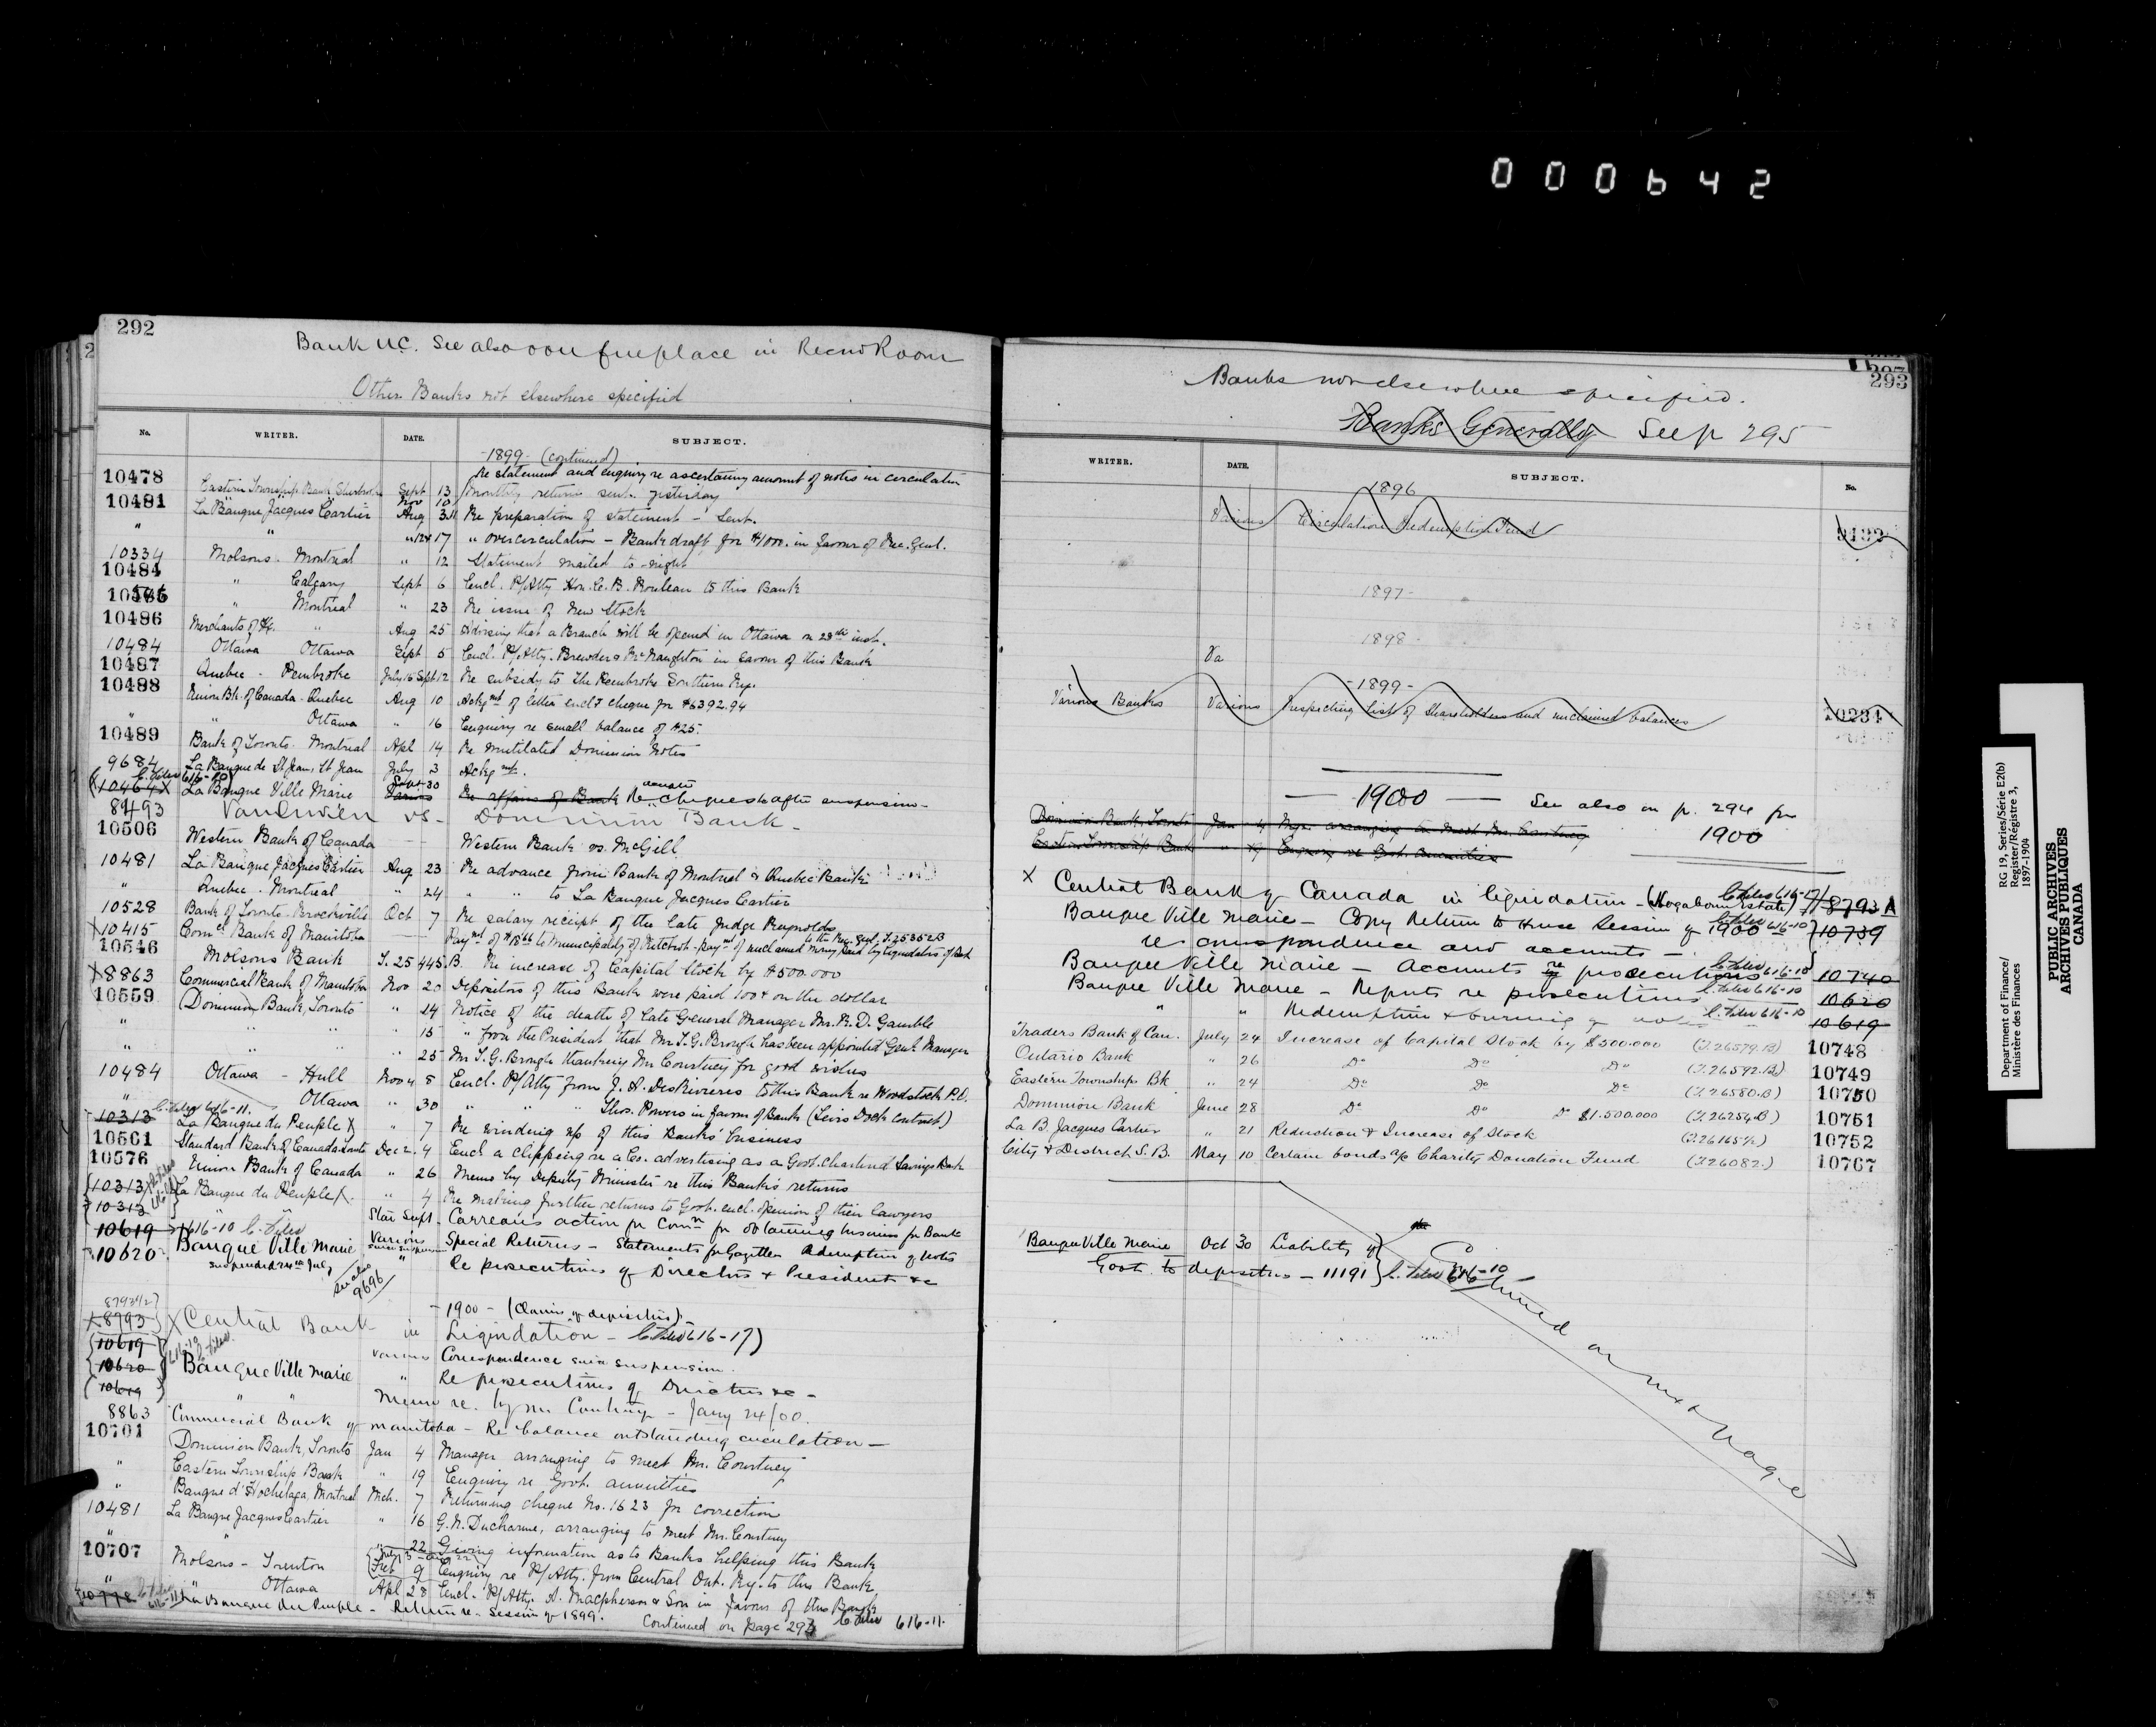 000642
292
Bank U.C. See also over fireplace in Record Room
Other Banks not elsewhere specified
No. WRITER. DATE. SUBJECT.
-1899- (continued)
10478 Eastern Townships Bank Sherbrooke Sept 13 Re statement and enquiry re ascertaining amount of notes in circulation
Nov 10 Monthly return sent yesterday
10481 La Banque Jacques Cartier Aug 3 Re preparation of statement - Sent.
" " 17 " overcirculation - Bank draft for $1000. in favour of Rec. Genl.
10334 Molsons. Montreal " 12 Statement mailed to-night
10484 " Calgary Sept 6 Encl. P/Atty Hon. C. B. Rouleau to this Bank
" Montreal " 23 Re issue of New Stock
10486 Merchants of Hx. " Aug 25 Advising that a Branch will be opened in Ottawa on 28th inst.
10484 Ottawa Ottawa Sept 5 Encl. P/Atty. Brewder & McNaughton in favour of this Bank
10487 Quebec - Pembroke July 16 Sept 12 Re subsidy to the Pembroke Southern Ry.
10488 Union Bk. of Canada - Quebec Aug 10 Ackgmt of letter encl'g cheque for $6392.94
" " Ottawa " 16 Enquiry re small balance of $25.
10489 Bank of Toronto. Montreal Apl 14 Re mutilated Dominion Notes
9684 La Banque de St Jean, St Jean July 3 Ackgmt.
C. Files 616-10
(10464X La Banque Ville Marie Sept 30 Re affairs of Bank Re cheques after suspension-
8493 Vanluven vs - Dominion Bank -
10506 Western Bank of Canada Western Bank vs. McGill
10481 La Banque Jacques Cartier Aug 23 Re advance from Bank of Montreal & Quebec Bank
" Quebec. Montreal " 24 " " to La Banque Jacques Cartier
10528 Bank of Toronto - Brockville Oct 7 Re salary receipt of the late Judge Reynolds
X10415 Comcl Bank of Manitoba Paymt of to Municipality of - paymt of unclaimed money paid by liquidators of Bank to the Rec. Genl. T.25352B
10546 Molsons Bank T. 25445.B. Re increase of Capital Stock by $500.000
X8863 Commercial Bank of Manitoba Nov 20 Depositors of this Bank were paid 100¢ on the dollar
10559 (Dominion Bank, Toronto " 14 Notice of the death of late General Manager Mr. R. D. Gamble
" " " " 15 " from the President that Mr. T. G. Brough has been appointed Genl. Manager
" " " " 25 Mr. T. G. Brough thanking Mr Courtney for good wishes
10484 Ottawa - Hull Nov 8 Encl. P/Atty from J. A. DesRivieres to this Bank re Woodstock P.O.
" " Ottawa " 30 " " " Thos. Powers in favour of Bank (Levis Dock contract)
C. Files 616-11.
10313 La Banque du Peuple X " 7 Re winding up of this Banks' business
10561 Standard Bank of Canada Toronto Dec 2. 4 Encl a clipping re a Co. advertising as a Govt. chartered Savings Bank
10576 Union Bank of Canada " 26 Memo by Deputy Minister re this Bank's returns
(10313 La Banque du Peuple X. " 4 Re making further returns to Govt. encl. opinion of their lawyers
10313 " " Star Sept. Carreau's action for Comn for obtaining business for Bank
10619 616-10 C. Files
10620 Banque Ville Marie Various since suspension Special Returns - Statements for Gazette Redemption of Notes
suspended 24th July " Re prosecutions of Directors & President &c
See also 9696
-1900- (Claims of depositors)
8793 1/2
X8793 X Central Bank in Liquidation - C. Files 616-17)
(10619 616-10 C. Files
10620 Banque Ville Marie Various Correspondence since suspension.
" Re prosecutions of Directors &c -
(10619) " " Memo re. by Mr Courtney - Jany 24/00.
8863 Commercial Bank of Manitoba - Re balance outstanding circulation -
10701 (Dominion Bank, Toronto Jan 4 Manager arranging to meet Mr. Courtney
" Eastern Township Bank " 19 Enquiry re Govt. annuities
" Banque d'Hochelaga, Montreal Mch. 7 Returning cheque No. 1623 for correction
10481 La Banque Jacques Cartier " 16 G. N. Ducharme, arranging to meet Mr. Courtney
" " " 22 Giving information as to Banks helping this Bank
10707 Molsons - Trenton Feb 9 Enquiry re P/Atty. from Central Ont. Ry. to this Bank
" " Ottawa Apl 28 Encl. P/Atty. A. Macpherson & Son in favour of this Bank
10778 C. Files 616-11 La Banque du Peuple - Return re. Session of 1899. C. Files 616-11.
Continued on page 294
293
Banks not elsewhere specified.
Banks Generally See p 295
WRITER. DATE. SUBJECT. No.
1896
Various Circulation Redemption Fund
1897-
1898-
Va
-1899-
Various Banks Various Respecting List of Shareholders and unclaimed balances 10234
- 1900 - See also on p. 294 for 1900
Dominion Bank, Toronto Jan 4 Mgr. arranging to meet Mr. Courtney
Eastern Township Bank " 19 Enquiry re Govt. Annuities
X Central Bank of Canada in liquidation - (Hogaboom Estate) C. Files 616-17 8793 A
Banque Ville Marie - Copy Return to House Session of 1900 C. Files 616-10 10739
re correspondence and accounts -
Banque Ville Marie - Accounts re prosecutions C. Files 616-10 10740
Banque Ville Marie - Reports re prosecutions C. Files 616-10 10620
" " Redemption & burning of notes C. Files 616-10 10619
Traders Bank of Can. July 24 Increase of Capital Stock by $500.000 (T.26579.B) 10748
Ontario Bank " 26 Do Do Do (T.26592.B) 10749
Eastern Townships Bk " 24 Do Do Do (T.26580.B) 10750
Dominion Bank June 28 Do Do Do $1.500.000 (T.26254.B) 10751
La B. Jacques Cartier " 21 Reduction & Increase of Stock (T.26165 1/2) 10752
City & District S. B. May 10 Certain bonds a/c Charity Donation Fund (T.26082.) 10767
Banque Ville Marie Oct 30 Liability of
Govt. to depositors - 11191 } C. Files 616-10
Continued on next page
Department of Finance/
Ministère des Finances
RG 19, Series/Série E2(b)
Register/Régistre 3,
1897-1904
PUBLIC ARCHIVES
ARCHIVES PUBLIQUES
CANADA